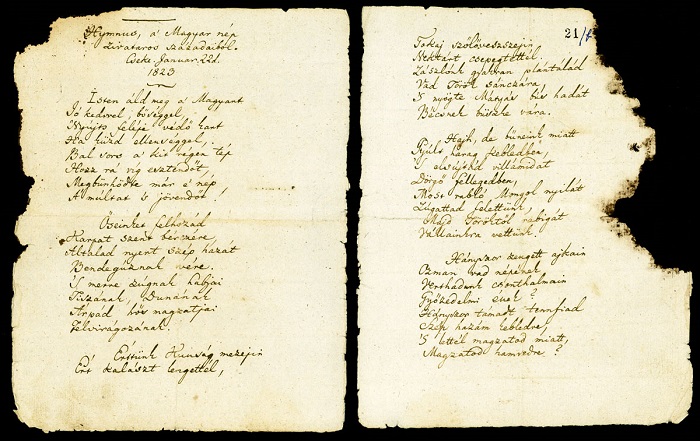 Hymnus, a' Magyar nép
zivataros századaiból.
Cseke, Januar. 22d.
1823
Isten áldd meg a' Magyart
Jó kedvvel, bőséggel,
Nyújts feléje védő kart
Ha küzd ellenséggel;
Bal sors a' kit régen tép
Hozz rá víg esztendőt,
Megbünhödte már e' nép
A' multat 's jövendőt!
Őseinket felhozád
Kárpát szent bérczére,
Általad nyert szép hazát
Bendegúznak vére.
'S merre zúgnak habjai
Tiszának, Dunának
Árpád hős magzatjai
Felvirágozának.
Értünk Kunság mezején
Ért kalászt lengettél,
21/
Tokaj szőlővesszejin
Nektárt csepegtettél.
Zászlónk gyakran plántálád
Vad Török sánczára,
'S nyögte Mátyás' bús hadát
Bécsnek büszke vára.
Hajh, de bűneink miatt
Gyúlt harag kebledben,
'S elsújtád villámidat
Dörgő fellegedben,
Most rabló Mongol nyilát
Zúgattad felettünk,
Majd Töröktől rabigát
Vállainkra vettünk.
Hányszor zengett ajkain
Ozman vad népének
Vert hadunk csonthalmain
Győzedelmi ének!
Hányszor támadt tenfiad
Szép hazám kebledre,
'S lettél magzatod miatt,
Magzatod hamvvedre?